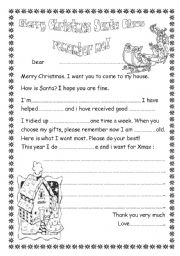 Merry Christmas Santa Claus
remember me!
Dear ..................
Merry Christmas. I want you to come to my house.
How is Santa? I hope you are fine.
I'm......................................., I have
helped............. and I have received good................
I tidied up .................. one time this year. When you
choose my gifts, please remember now I am ........ old.
Here is what I want most. Please do your best!
This year I do .............e.... and want for Xmas :
Thank you very much
Love..............